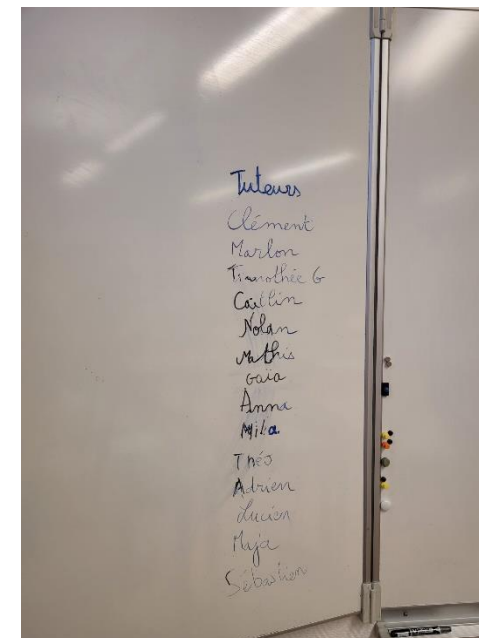 Tuteurs
Clément
Marlon
Timothée G
Caitlin
Nolan
Mathis
Gaïa
Anna
Mila
Théo
Adrien
Lucien
Maja
Sébastien